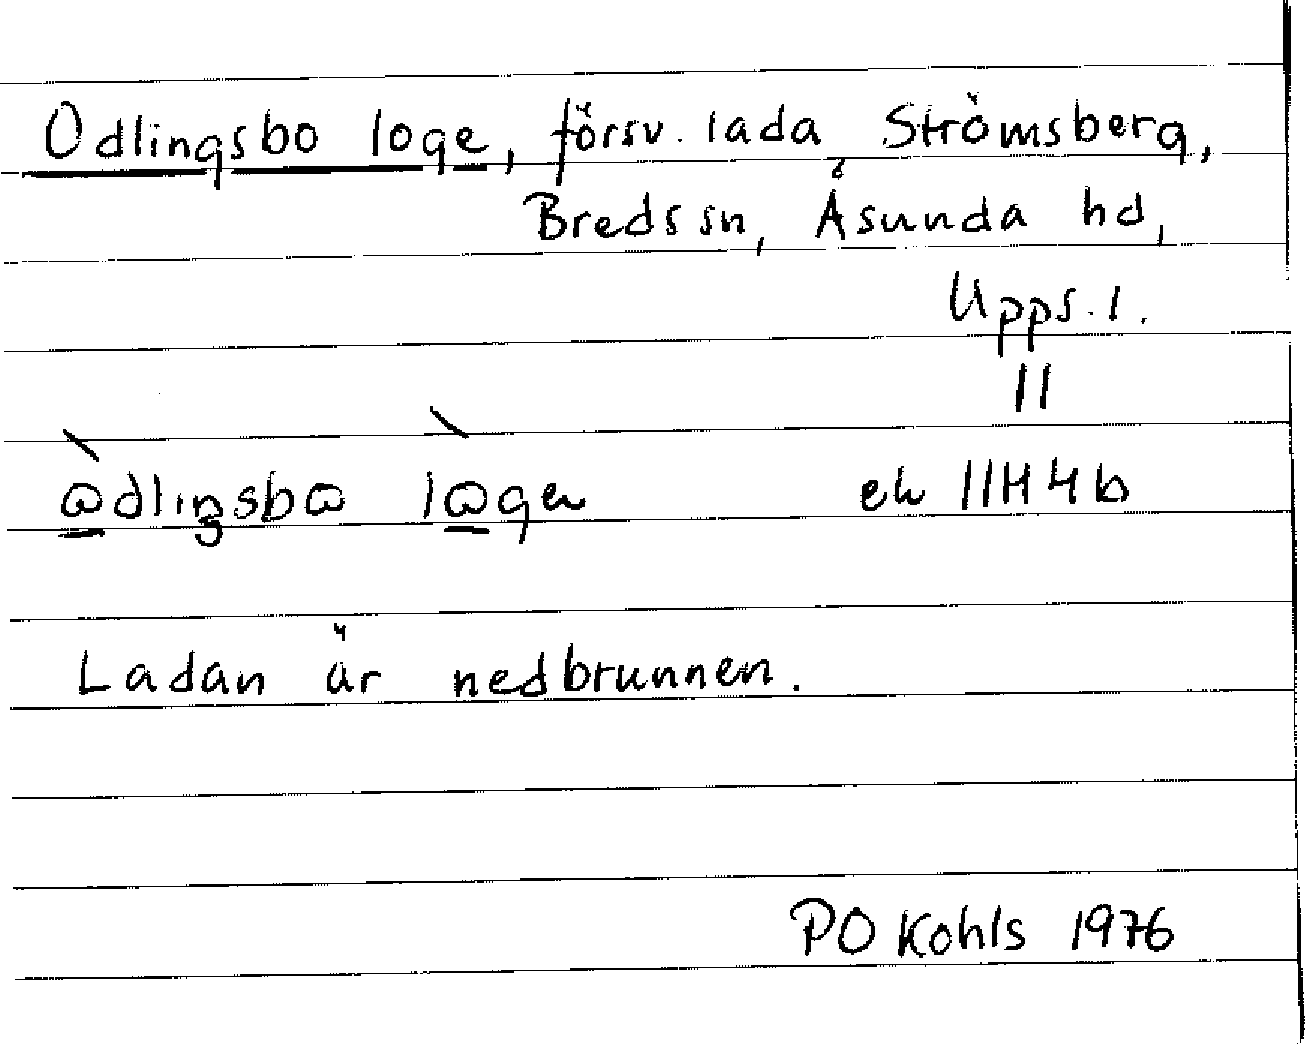 Odlingsbo loge, försv. lada Strömsberg,
Breds sn, Åsunda hd,
Upps. l.
11
ek 11H 4b
Ladan är nedbrunnen.
PO Kohls 1976